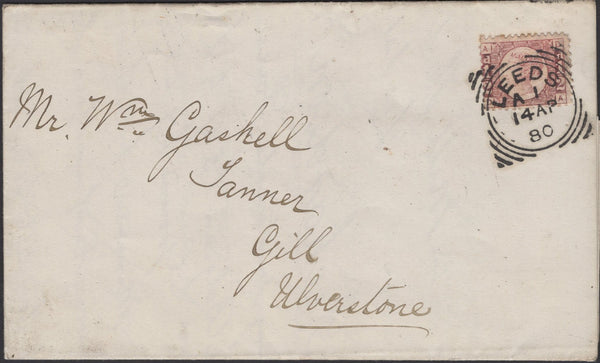 LEEDS
A 1
14 AP
80
Mr. Wm. Gaskell
Tanner
Gill
Ulverstone